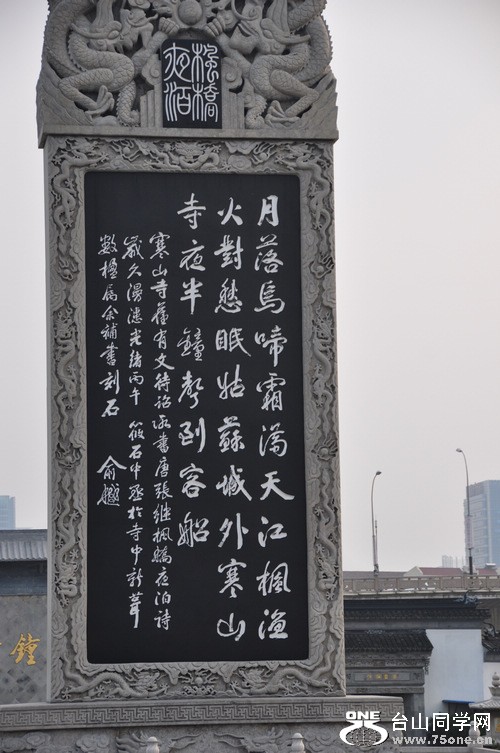 楓橋
夜泊
月落烏啼霜滿天江楓漁
火對愁眠姑蘇城外寒山
寺夜半鐘聲到客船
寒山寺舊有文待詔所書唐張繼楓橋夜泊詩
歲久漫漶光緒丙午筱石中丞於寺中新葺
數楹屬余補書刻石 俞樾
鐘
ONE
台山同学网
www.75one.cn